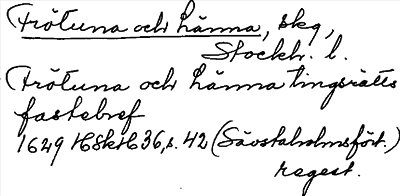 Frötuna och Länna, skg,
Stockh. l.
Frötuna och Länna tingsrätts
fastebref
1629 HSkH 36, s. 42 (Säfstaholmsfört.)
regest.